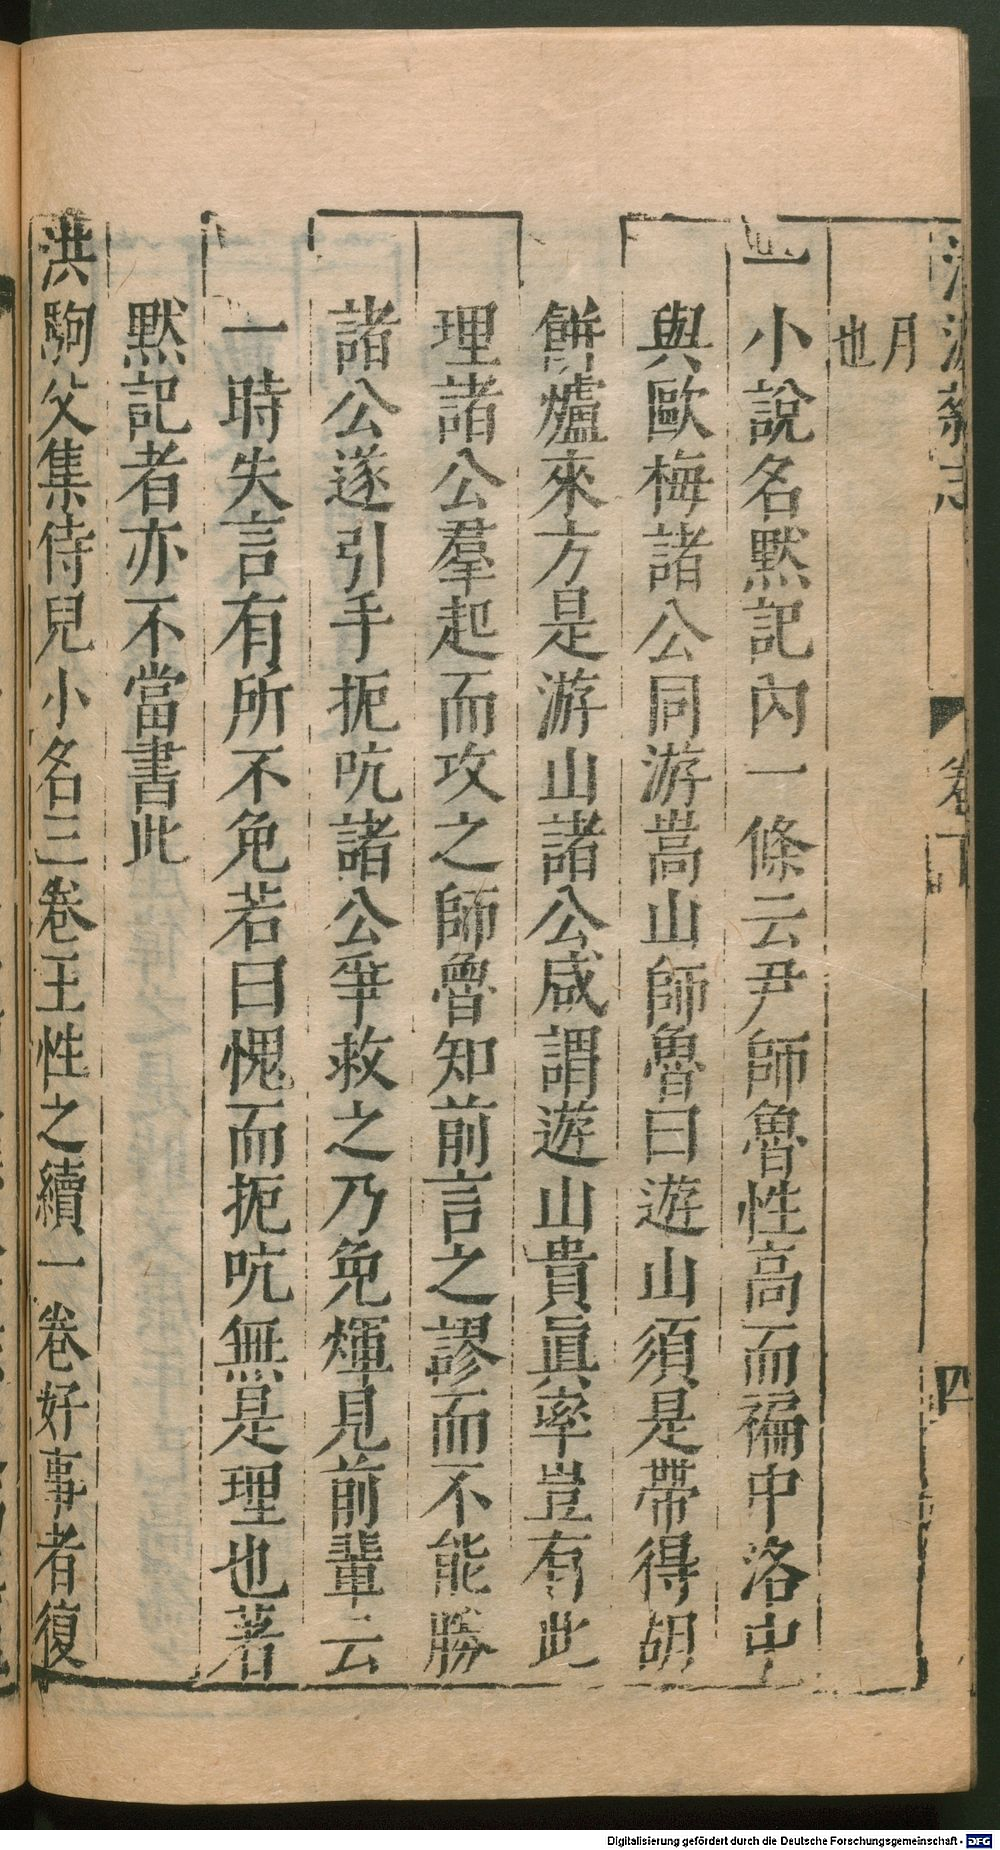 清波雜志 卷下 四
月
也
一小說名黙記內一條云尹師魯性高而褊中洛中
與歐梅諸公同游嵩山師魯曰遊山須是帶得胡
餅爐來方是游山諸公咸謂遊山貴眞率豈有此
理諸公羣起而攻之師魯知前言之謬而不能勝
諸公遂引手扼吭諸公爭救之乃免煇見前輩云
一時失言有所不免若曰愧而扼吭無是理也著
黙記者亦不當書此
洪駒父集侍兒小名三卷王性之續一卷好事者復
Digitalisierung gefördert durch die Deutsche Forschungsgemeinschaft - DFG